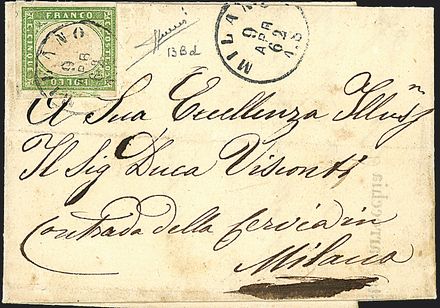 FRANCO
BOLLO
MILANO
9
APR
62
13Bd
MILANO
9
APR
62
A Sua Eccellenza Illus m
Il Sig Duca Visconti
Contrada della Cervia in
Milano